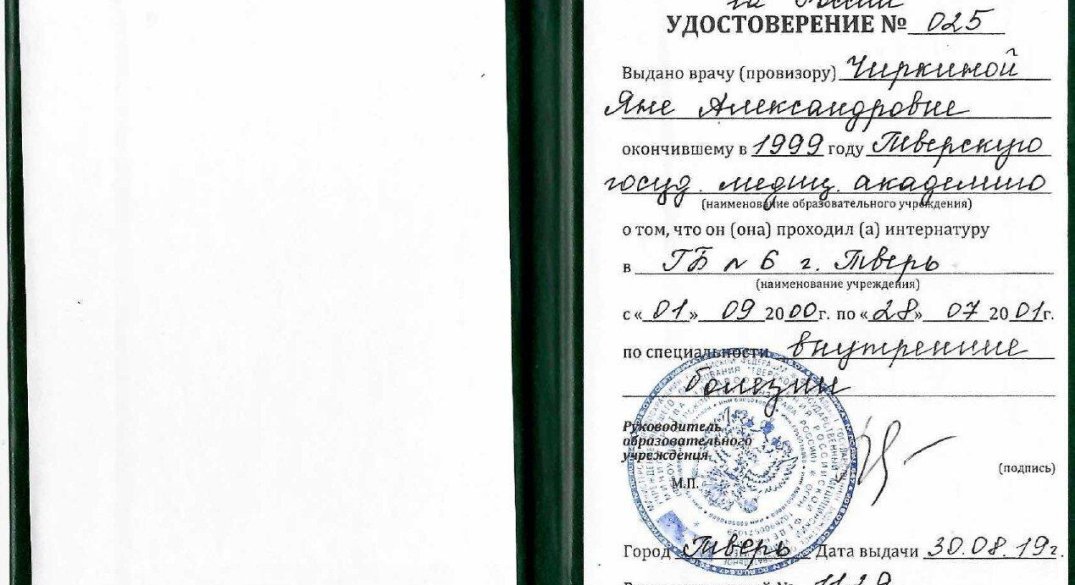 УДОСТОВЕРЕНИЕ № 025
Выдано врачу (провизору) Чиркиной
Яне Александровне
окончившему в 1999 году Тверскую
госуд. медиц. академию
(наименование образовательного учреждения)
о том, что он (она) проходил (а) интернатуру
в ГБ № 6 г. Тверь
(наименование учреждения)
с « 01 » 09 2000г. по « 28 » 07 2001г.
по специальности внутренние
болезни
Руководитель
образовательного
учреждения
(подпись)
М.П.
Город Тверь Дата выдачи 30.08.19г.
№ 1129